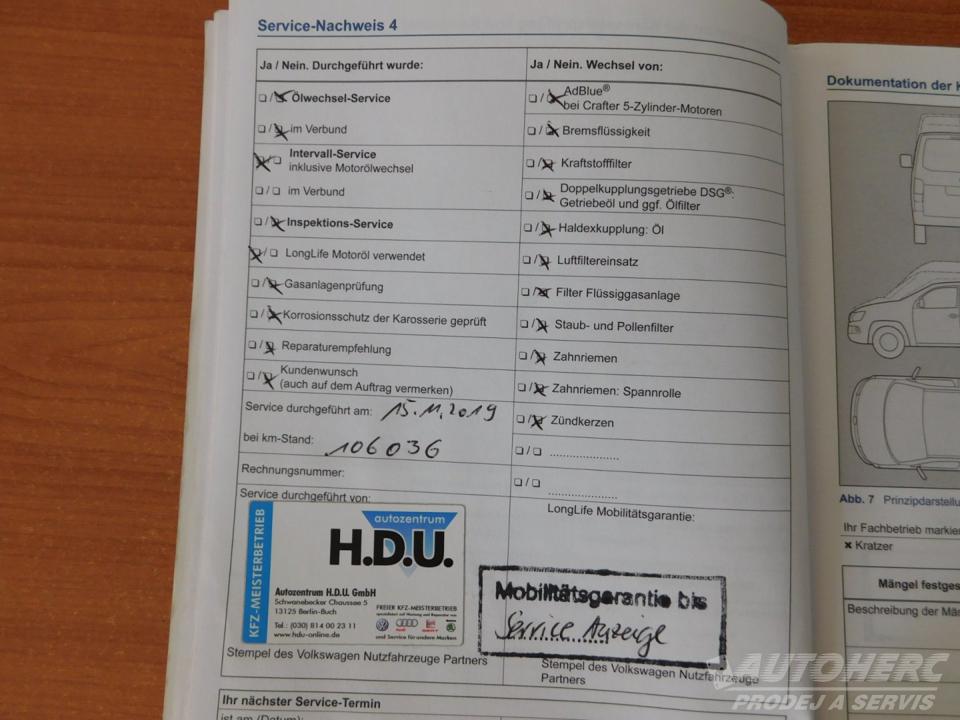 Service-Nachweis 4
Ja / Nein. Durchgeführt wurde:
❑ / ❑ Ölwechsel-Service
❑ / ❑ im Verbund
❑ / ❑ Intervall-Service
inklusive Motorölwechsel
❑ / ❑ im Verbund
❑ / ❑ Inspektions-Service
❑ / ❑ LongLife Motoröl verwendet
❑ / ❑ Gasanlagenprüfung
❑ / ❑ Korrosionsschutz der Karosserie geprüft
❑ / ❑ Reparaturempfehlung
❑ / ❑ Kundenwunsch
(auch auf dem Auftrag vermerken)
Service durchgeführt am: 15.11.2019
bei km-Stand: 106036
Rechnungsnummer:
Service durchgeführt von:
KFZ-MEISTERBETRIEB
autozentrum
H.D.U.
Autozentrum H.D.U. GmbH
Schwanebecker Chaussee 5
13125 Berlin-Buch
Tel.: (030) 814 00 23 11
www.hdu-online.de
FREIER KFZ-MEISTERBETRIEB
spezialisiert auf Wartung und Reparatur von
Audi
SEAT
und Service für andere Marken
Stempel des Volkswagen Nutzfahrzeuge Partners
Ihr nächster Service-Termin
ist am (Datum):
Ja / Nein. Wechsel von:
❑ / ❑ AdBlue®
bei Crafter 5-Zylinder-Motoren
❑ / ❑ Bremsflüssigkeit
❑ / ❑ Kraftstofffilter
❑ / ❑ Doppelkupplungsgetriebe DSG®:
Getriebeöl und ggf. Ölfilter
❑ / ❑ Haldexkupplung: Öl
❑ / ❑ Luftfiltereinsatz
❑ / ❑ Filter Flüssiggasanlage
❑ / ❑ Staub- und Pollenfilter
❑ / ❑ Zahnriemen
❑ / ❑ Zahnriemen: Spannrolle
❑ / ❑ Zündkerzen
❑ / ❑ .....................
❑ / ❑
.....................
LongLife Mobilitätsgarantie:
Mobilitätsgarantie bis
Service Anzeige
Stempel des Volkswagen Nutzfahrzeuge
Partners
Dokumentation der K
Abb. 7 Prinzipdarstellu
Ihr Fachbetrieb markier
× Kratzer
Mängel festges
Beschreibung der Mä
AUTOHERC
PRODEJ A SERVIS